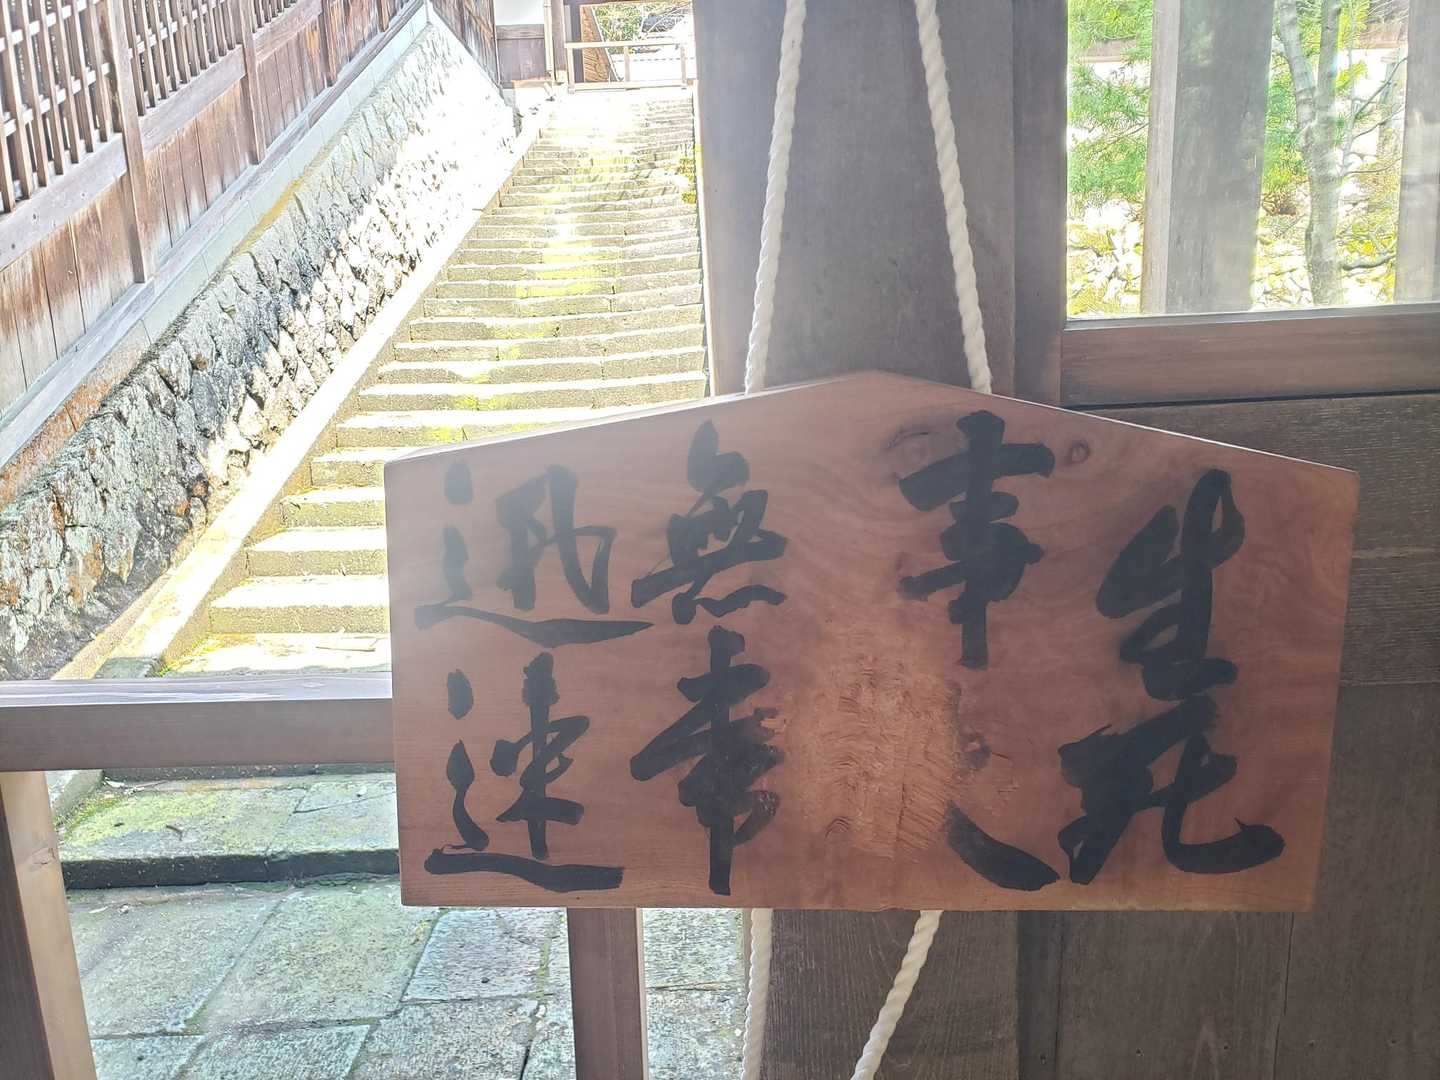 生死
事
無常
迅速